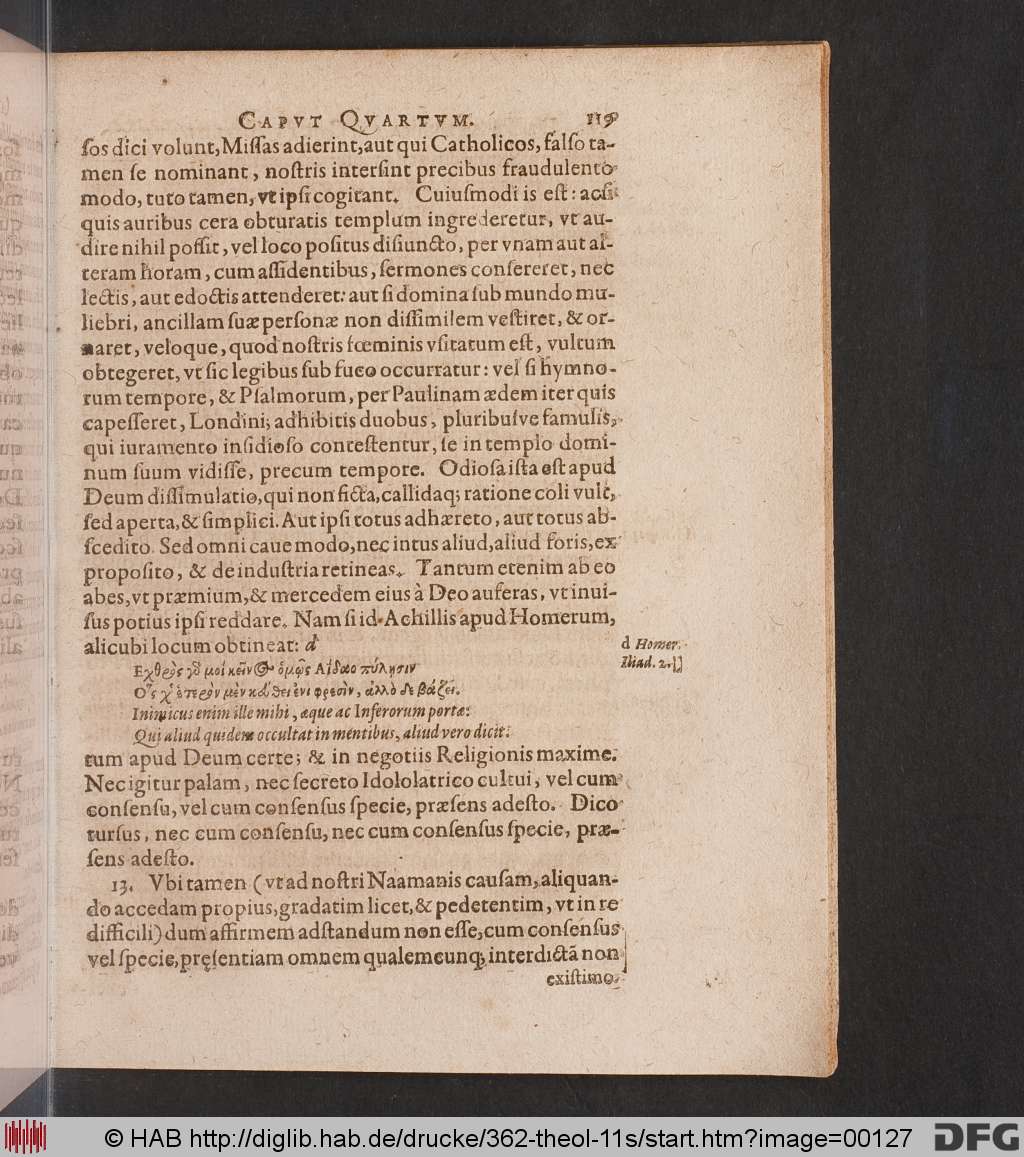 CAPVT QVARTVM. 119
ſos dici volunt, Miſſas adierint, aut qui Catholicos, falſo ta-
men ſe nominant, noſtris interſint precibus fraudulento
modo, tuto tamen, vt ipſi cogitant. Cuiuſmodi is eſt: acſi
quis auribus cera obturatis templum ingrederetur, vt au-
dire nihil poſſit, vel loco poſitus diſiuncto, per vnam aut al-
teram horam, cum aſſidentibus, ſermones conſereret, nec
lectis, aut edoctis attenderet: aut ſi domina ſub mundo mu-
liebri, ancillam ſuæ perſonæ non diſſimilem veſtiret, & or-
naret, veloque, quod noſtris fœminis vſitatum eſt, vultum
obtegeret, vt ſic legibus ſub fuco occurratur: vel ſi hymno-
rum tempore, & Pſalmorum, per Paulinam ædem iter quis
capeſſeret, Londini; adhibitis duobus, pluribuſve famulis,
qui iuramento inſidioſo conteſtentur, ſe in templo domi-
num ſuum vidiſſe, precum tempore. Odioſa iſta eſt apud
Deum diſſimulatio, qui non ficta, callidaq; ratione coli vult,
ſed aperta, & ſimplici. Aut ipſi totus adhæreto, aut totus ab-
ſcedito. Sed omni caue modo, nec intus aliud, aliud foris, ex
propoſito, & de induſtria retineas. Tantum etenim ab eo
abes, vt præmium, & mercedem eius à Deo auferas, vt inui-
ſus potius ipſi reddare. Nam ſi id Achillis apud Homerum,
alicubi locum obtineat: d
d Homer.
Iliad. 2.
Εχθρὸς γὸ μοι κεῖνΘ ὁμῶς Αἴδαο πύλησιν
Ὅς χ' ἕτερον μὲν κεύθει ἐνι φρεσὶν, ἀλλὸ δε βάζει.
Inimicus enim ille mihi, æque ac Inferorum portæ:
Qui aliud quidem occultat in mentibus, aliud vero dicit:
tum apud Deum certe; & in negotiis Religionis maxime.
Nec igitur palam, nec ſecreto Idololatrico cultui, vel cum
conſenſu, vel cum conſenſus ſpecie, præſens adeſto. Dico
rurſus, nec cum conſenſu, nec cum conſenſus ſpecie, præ-
ſens adeſto.
13. Vbi tamen (vt ad noſtri Naamanis cauſam, aliquan-
do accedam propius, gradatim licet, & pedetentim, vt in re
difficili) dum affirmem adſtandum non eſſe, cum conſenſus
vel ſpecie, pręſentiam omnem qualemcunq; interdictā non
exiſtimo.
© HAB http://diglib.hab.de/drucke/362-theol-11s/start.htm?image=00127
DFG